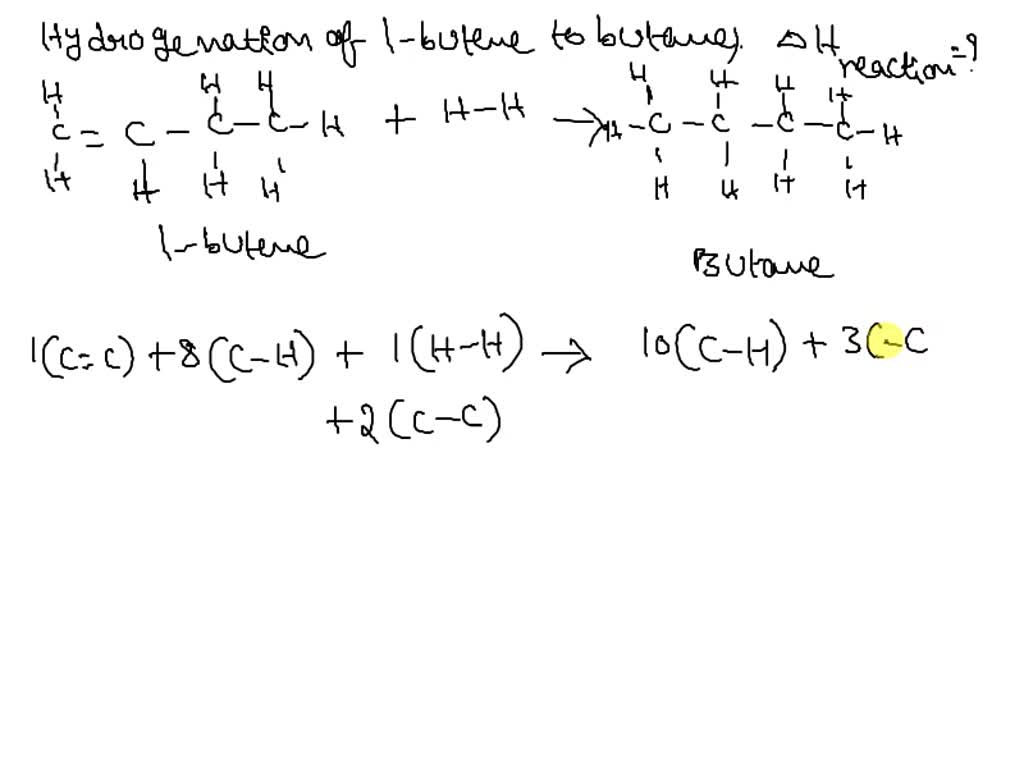 Hydrogenation of 1-butene to butane, ΔH reaction=?
H H H H H H H
C = C - C - C - H + H-H → H - C - C - C - C - H
H H H H H H H H
1-butene
Butane
1(C=C) + 8(C-H) + 1(H-H) → 10(C-H) + 3(-C
+2(C-C)